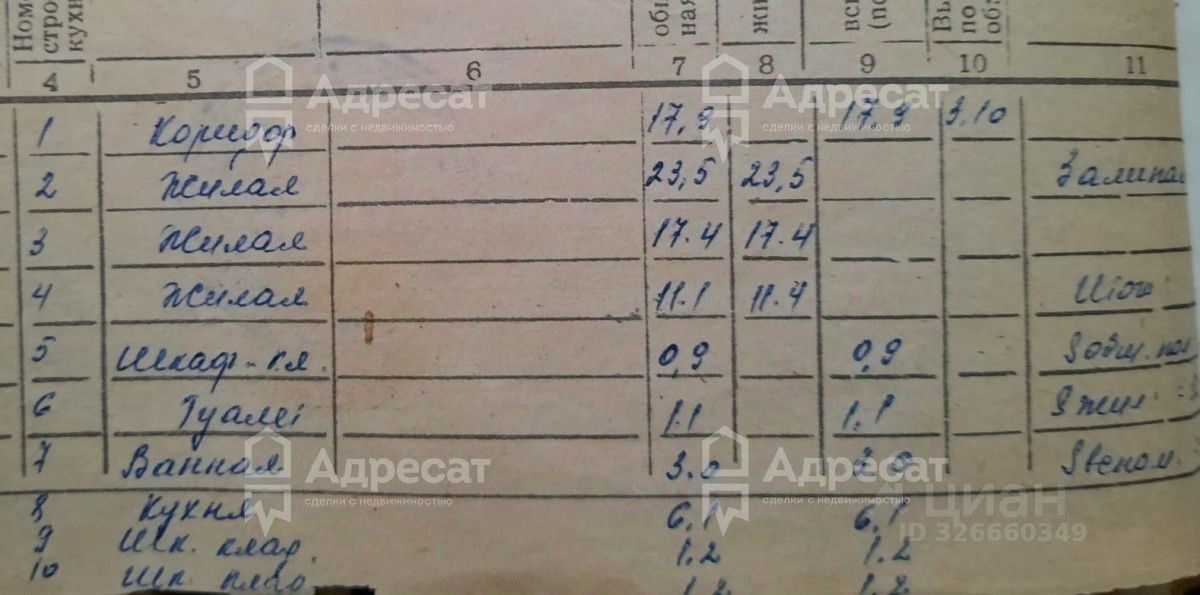 Номе
стро
кухн
общ
ная
жи
всп
(по
Вы
по
об
4 5 6 7 8 9 10 11
Адресат Адресат
сделки с недвижимостью сделки с недвижимостью
1 Коридор 17,9 17,9 3,10
2 Жилая 23,5 23,5
3 Жилая 17.4 17.4
4 Жилая 11.1 11.4 Итого
5 Шкаф-кл. 0,9 0,9 Sобщ. пол
6 Туалет 1.1 1.1 Sжил =
7 Ванная 3.0 3.0 Sвспом.
Адресат Адресат
сделки с недвижимостью сделки с недвижимостью
8 Кухня 6,1 6,1
циан
ID 326660349
9 Шк. клад. 1.2 1.2
10 Шк. клад 1.2 1.2